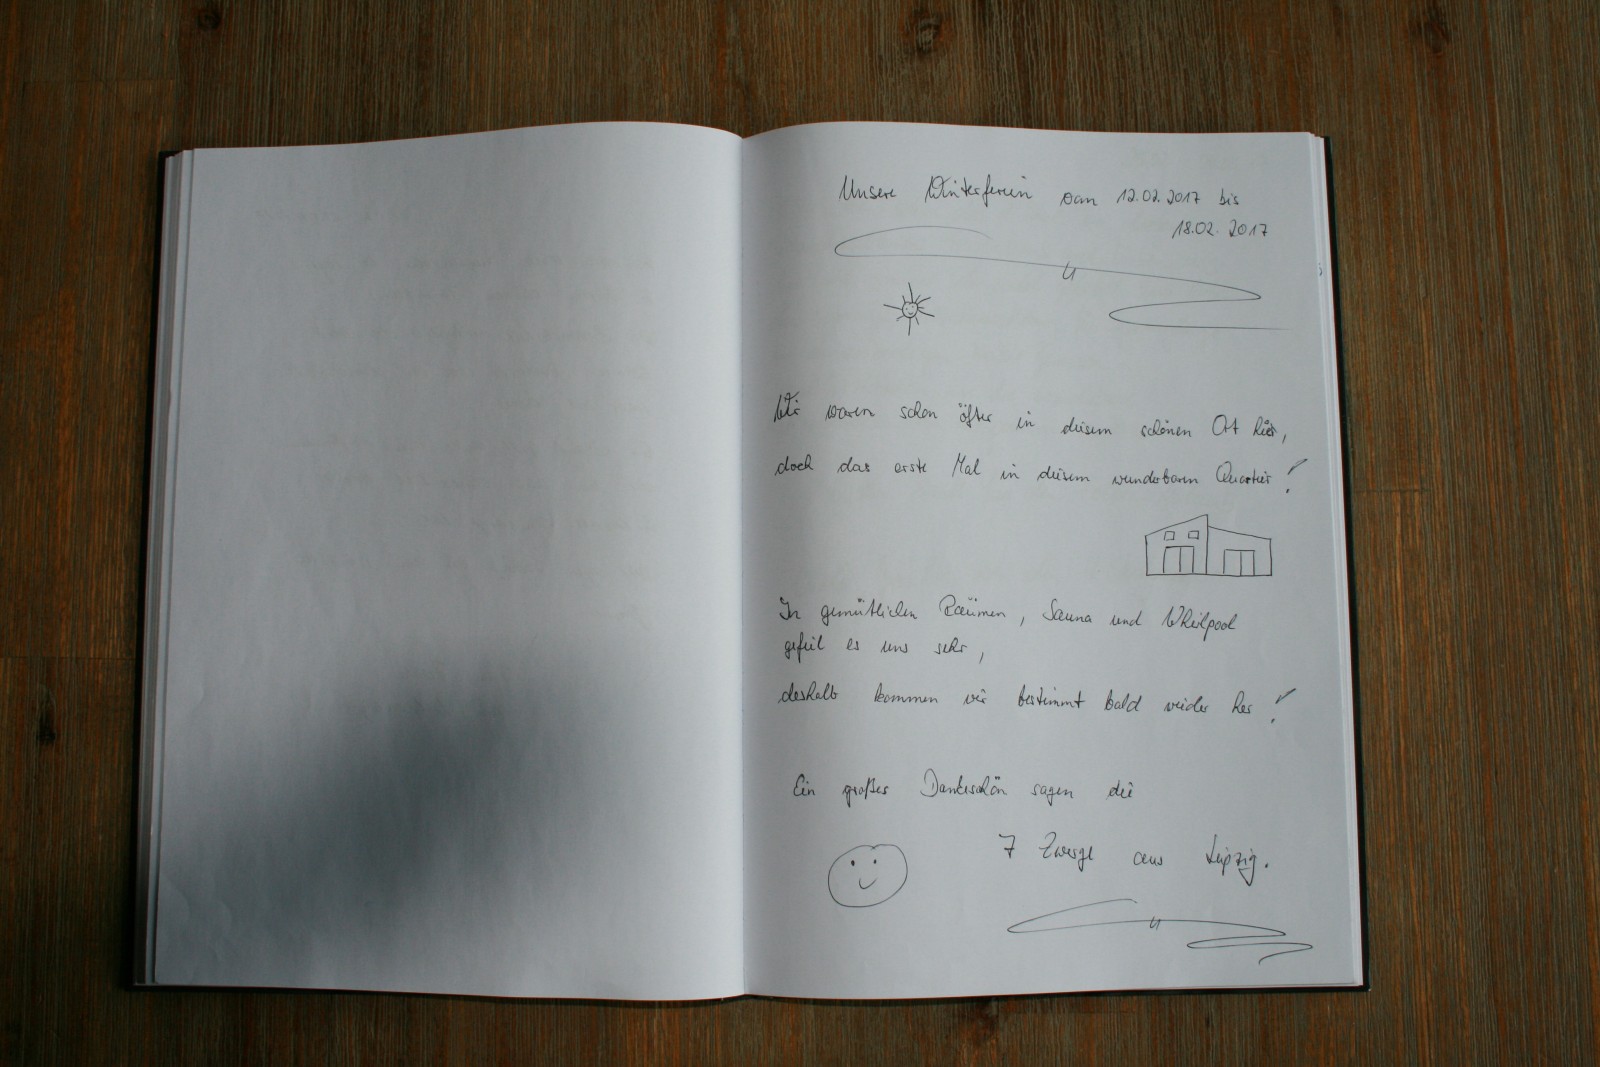 Unsere Winterferien vom 12.02.2017 bis
18.02.2017
Wir waren schon öfter in diesem schönen Ort hier,
doch das erste Mal in diesem wunderbaren Quartier!
In gemütlichen Räumen, Sauna und Whirlpool
gefiel es uns sehr,
deshalb kommen wir bestimmt bald wieder her!
Ein großes Dankeschön sagen die
7 Zwerge aus Leipzig.